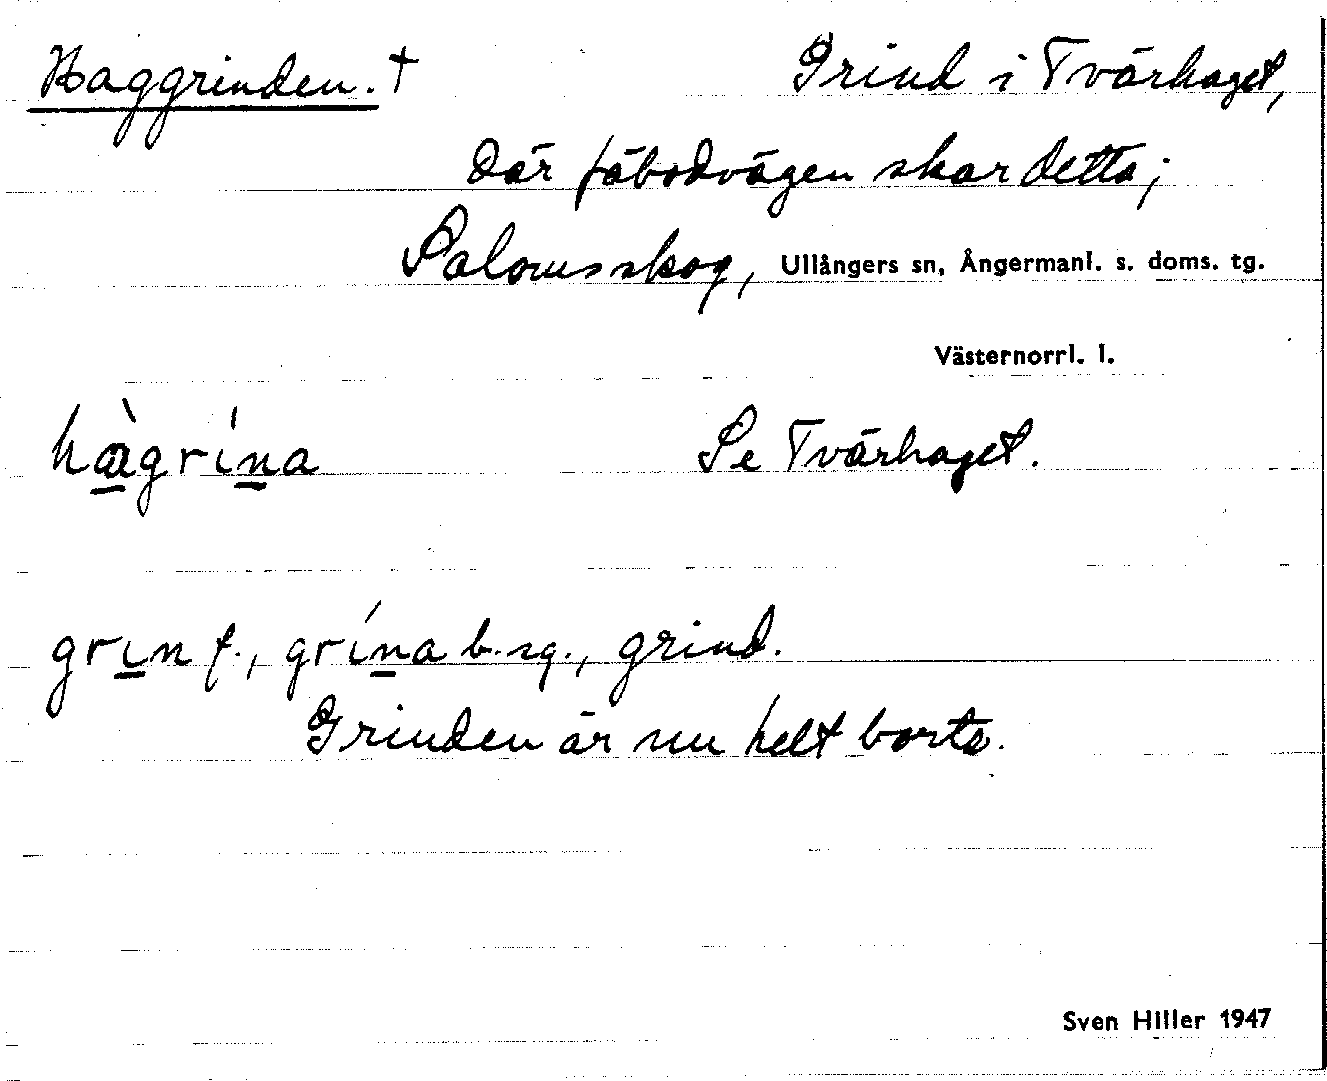 Haggrinden. † Grind i Tvärhaget,
där fäbodvägen skar detta;
Salomsskog, Ullångers sn, Ångermanl. s. doms. tg.
Västernorrl. l.
hàgrína Se Tvärhaget.
grin f., grína b. sg., grind.
Grinden är nu helt borta.
Sven Hiller 1947